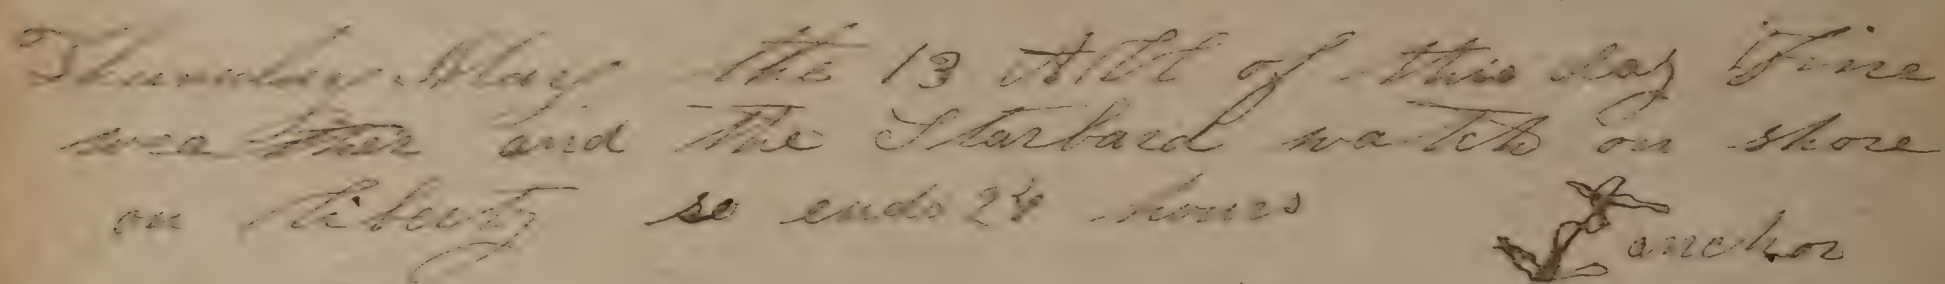 Thursday May the 13 All of this day Fine
weather and the Starbard watch on shore
on Liberty so ends 24 hours
anchor